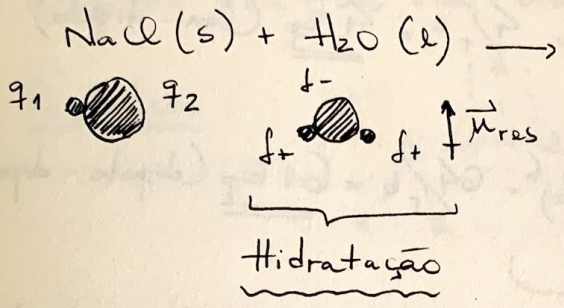 NaCl (s) + H2O (l) →
δ-
q1 q2
δ+ δ+ μ⃗res
Hidratação